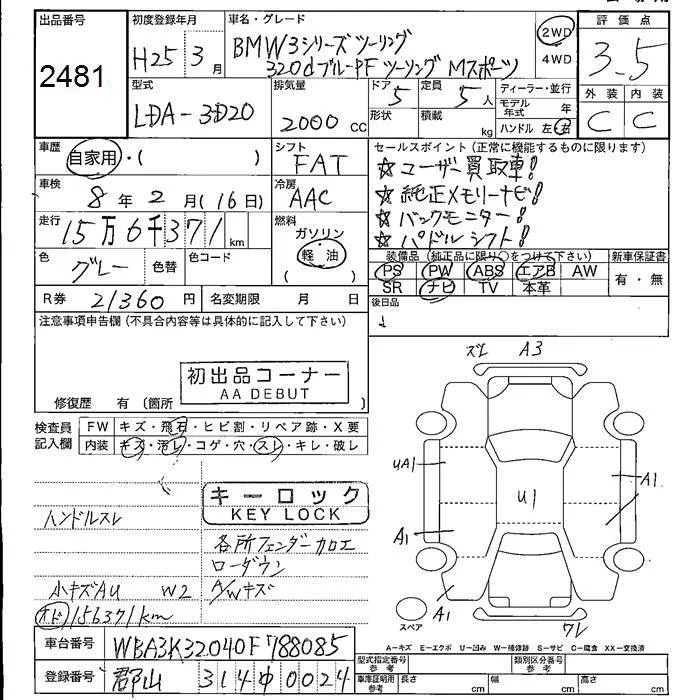 出品番号
2481
初度登録年月
H25 3月
車名・グレード
BMW3シリーズ ツーリング
320d ブルーPF ツーリング Mスポーツ
2WD
4WD
評価点
3.5
型式
LDA-3D20
排気量
2000 cc
ドア
5
定員
5人
形状
積載
kg
ディーラー・並行
モデル年式 年
ハンドル 左・右
外装
内装
C
C
車歴
自家用・( )
シフト
FAT
セールスポイント(正常に機能するものに限ります)
☆ユーザー買取車!
☆純正メモリーナビ!
☆バックモニター!
☆パドルシフト!
車検
8年2月(16日)
冷房
AAC
走行
15万6千371km
燃料
ガソリン
軽油
( )
色
グレー
色替
色コード
装備品(純正品に限り○をつけて下さい)
新車保証書
PS PW ABS エアB AW
SR ナビ TV 本革
有・無
R券 21360円
名変期限 月 日
後日品
注意事項申告欄(不具合内容等は具体的に記入して下さい)
初出品コーナー
AA DEBUT
修復歴 有 〔箇所
検査員
記入欄
FW キズ・飛石・ヒビ割・リペア跡・X要
内装 キズ・汚レ・コゲ・穴・スレ・キレ・破レ
キーロック
KEY LOCK
ハンドルスレ
各所フェンダーカロエ
ローダウン
小キズAU W2
A/Wキズ
オド 156371km
ズレ A3
UA1
A1
U1
A1
A1
ワレ
スペア
A-キズ E-エクボ U-凹み W-補修跡 S-サビ C-腐食 XX-交換済
車台番号
WBA3K32040F788085
登録番号
郡山 314 ゆ 0024
型式指定番号
参考
類別区分番号
参考
車庫証明用
参考
長さ cm
幅 cm
高さ cm